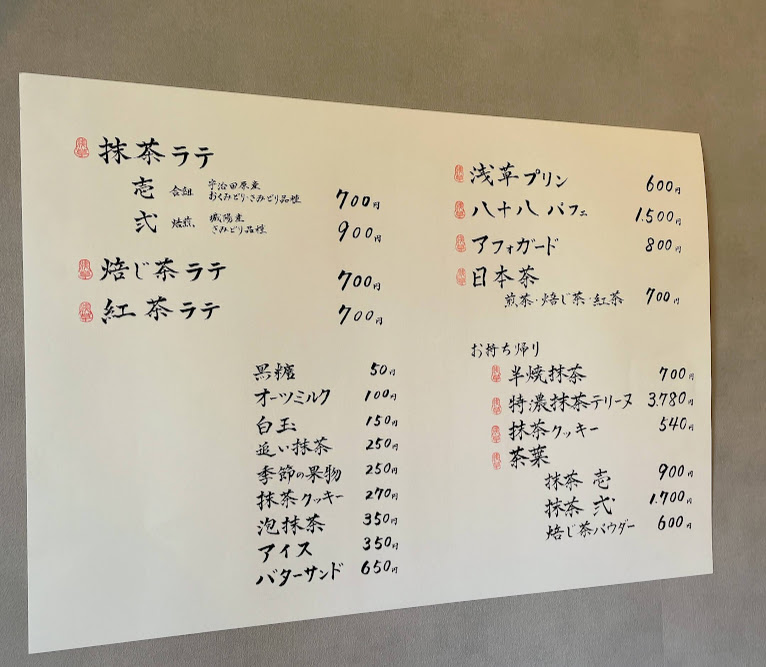 抹茶ラテ
壱 合組 宇治田原産 おくみどり・さみどり品種 700円
弐 焙煎 城陽産 さみどり品種 900円
焙じ茶ラテ 700円
紅茶ラテ 700円
黒糖 50円
オーツミルク 100円
白玉 150円
追い抹茶 250円
季節の果物 250円
抹茶クッキー 270円
泡抹茶 350円
アイス 350円
バターサンド 650円
浅草プリン 600円
八十八パフェ 1.500円
アフォガード 800円
日本茶
煎茶・焙じ茶・紅茶 700円
お持ち帰り
半焼抹茶 700円
特濃抹茶テリーヌ 3.780円
抹茶クッキー 540円
茶葉
抹茶 壱 900円
抹茶 弐 1.700円
焙じ茶パウダー 600円